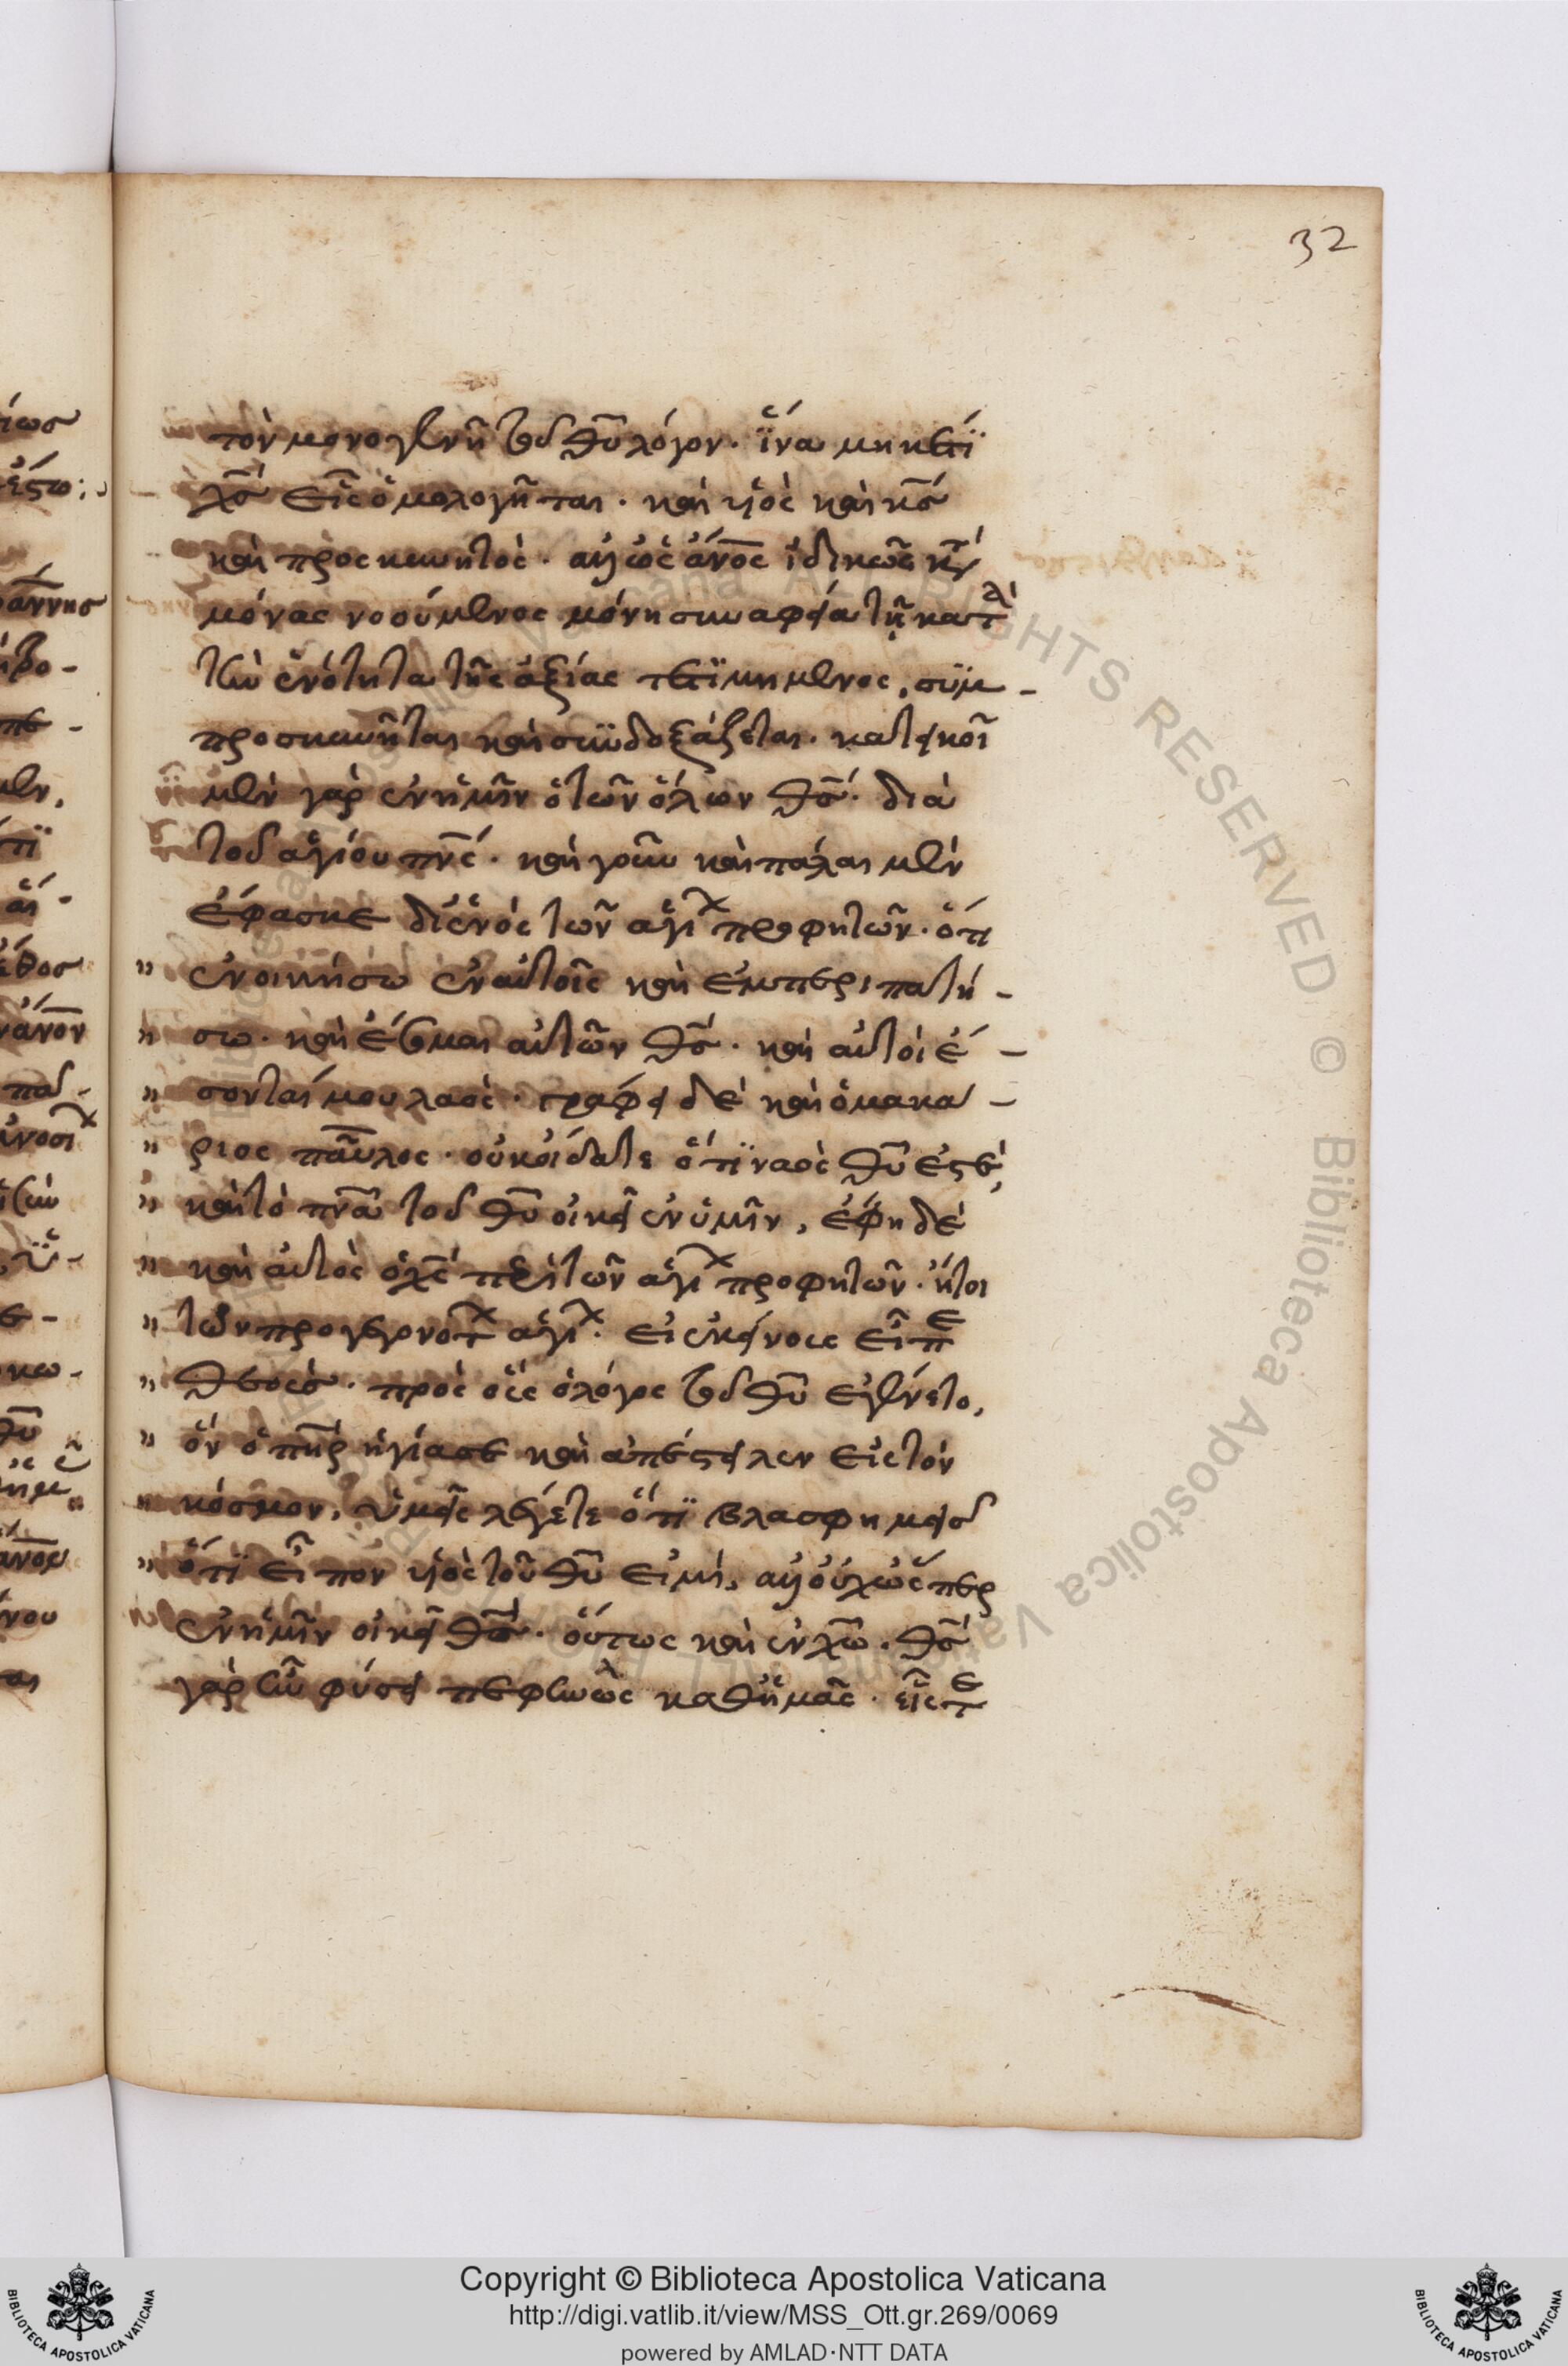 32
τὸν μονογενῆ τοῦ θ̅υ̅ λόγον. ἵνα μηκέτϊ
χ̅ς̅ εἷς ὁμολογῆται. καὶ υἱὸς καὶ κ̅ς̅
καὶ προσκυνητός. ἀλλ' ὡς ἄν̅ο̅ς̅ ἰδικῶς κατὰ
μόνας νοούμενος μόνη συναφεία τῆ κατὰ
τὴν ἑνότητα τῆς ἀξίας τετϊμημένος, συμ-
προσκυνῆται καὶ συνδοξάζεται. κατοικεῖ
μὲν γὰρ ἐν ἡμῖν ὁ τῶν ὅλων θ̅ς̅. διὰ
τοῦ ἁγίου πν̅ς̅. καὶ γοῦν καὶ πάλαι μὲν
ἔφασκε δι' ἑνὸς τῶν ἁγί προφητῶν. ὅτι
" ἐνοικήσω ἐν αὐτοῖς καὶ ἐμπεριπατή-
" σω. καὶ ἔσομαι αὐτῶν θ̅ς̅. καὶ αὐτοὶ ἔ-
" σονταί μου λαός. γράφει δὲ καὶ ὁ μακά-
" ριος παῦλος. οὐκ οἴδατε ὅτϊ ναὸς θ̅υ̅ ἐστέ,
" καὶ τὸ πν̅α̅ τοῦ θ̅υ̅ οἰκεῖ ἐν ὑμῖν, ἔφη δὲ
" καὶ αὐτὸς ὁ χ̅ς̅ περὶ τῶν ἁγί προφητῶν. ἤτοι
" τῶν προγεγονότ ἁγί. εἰ ἐκείνους εἶπε
" θεούς. πρὸς οὓς ὁ λόγος τοῦ θ̅υ̅ ἐγένετο,
" ὃν ὁ π̅η̅ρ̅ ἡγίασε καὶ ἀπέστειλεν εἰς τὸν
" κόσμον, ὑμεῖς λέγετε ὅτϊ βλασφημεῖς
" ὅτϊ εἶπον υἱὸς τοῦ θ̅υ̅ εἰμί, ἀλλ' οὐχ ὥσπερ
ἐν ἡμῖν οἰκεῖ θ̅ς̅. οὕτως καὶ ἐν χ̅ω̅. θ̅ς̅
γὰρ ἦν φύσει πεφηνὼς καθ' ἡμᾶς. εἷς τε
Copyright © Biblioteca Apostolica Vaticana
http://digi.vatlib.it/view/MSS_Ott.gr.269/0069
powered by AMLAD·NTT DATA